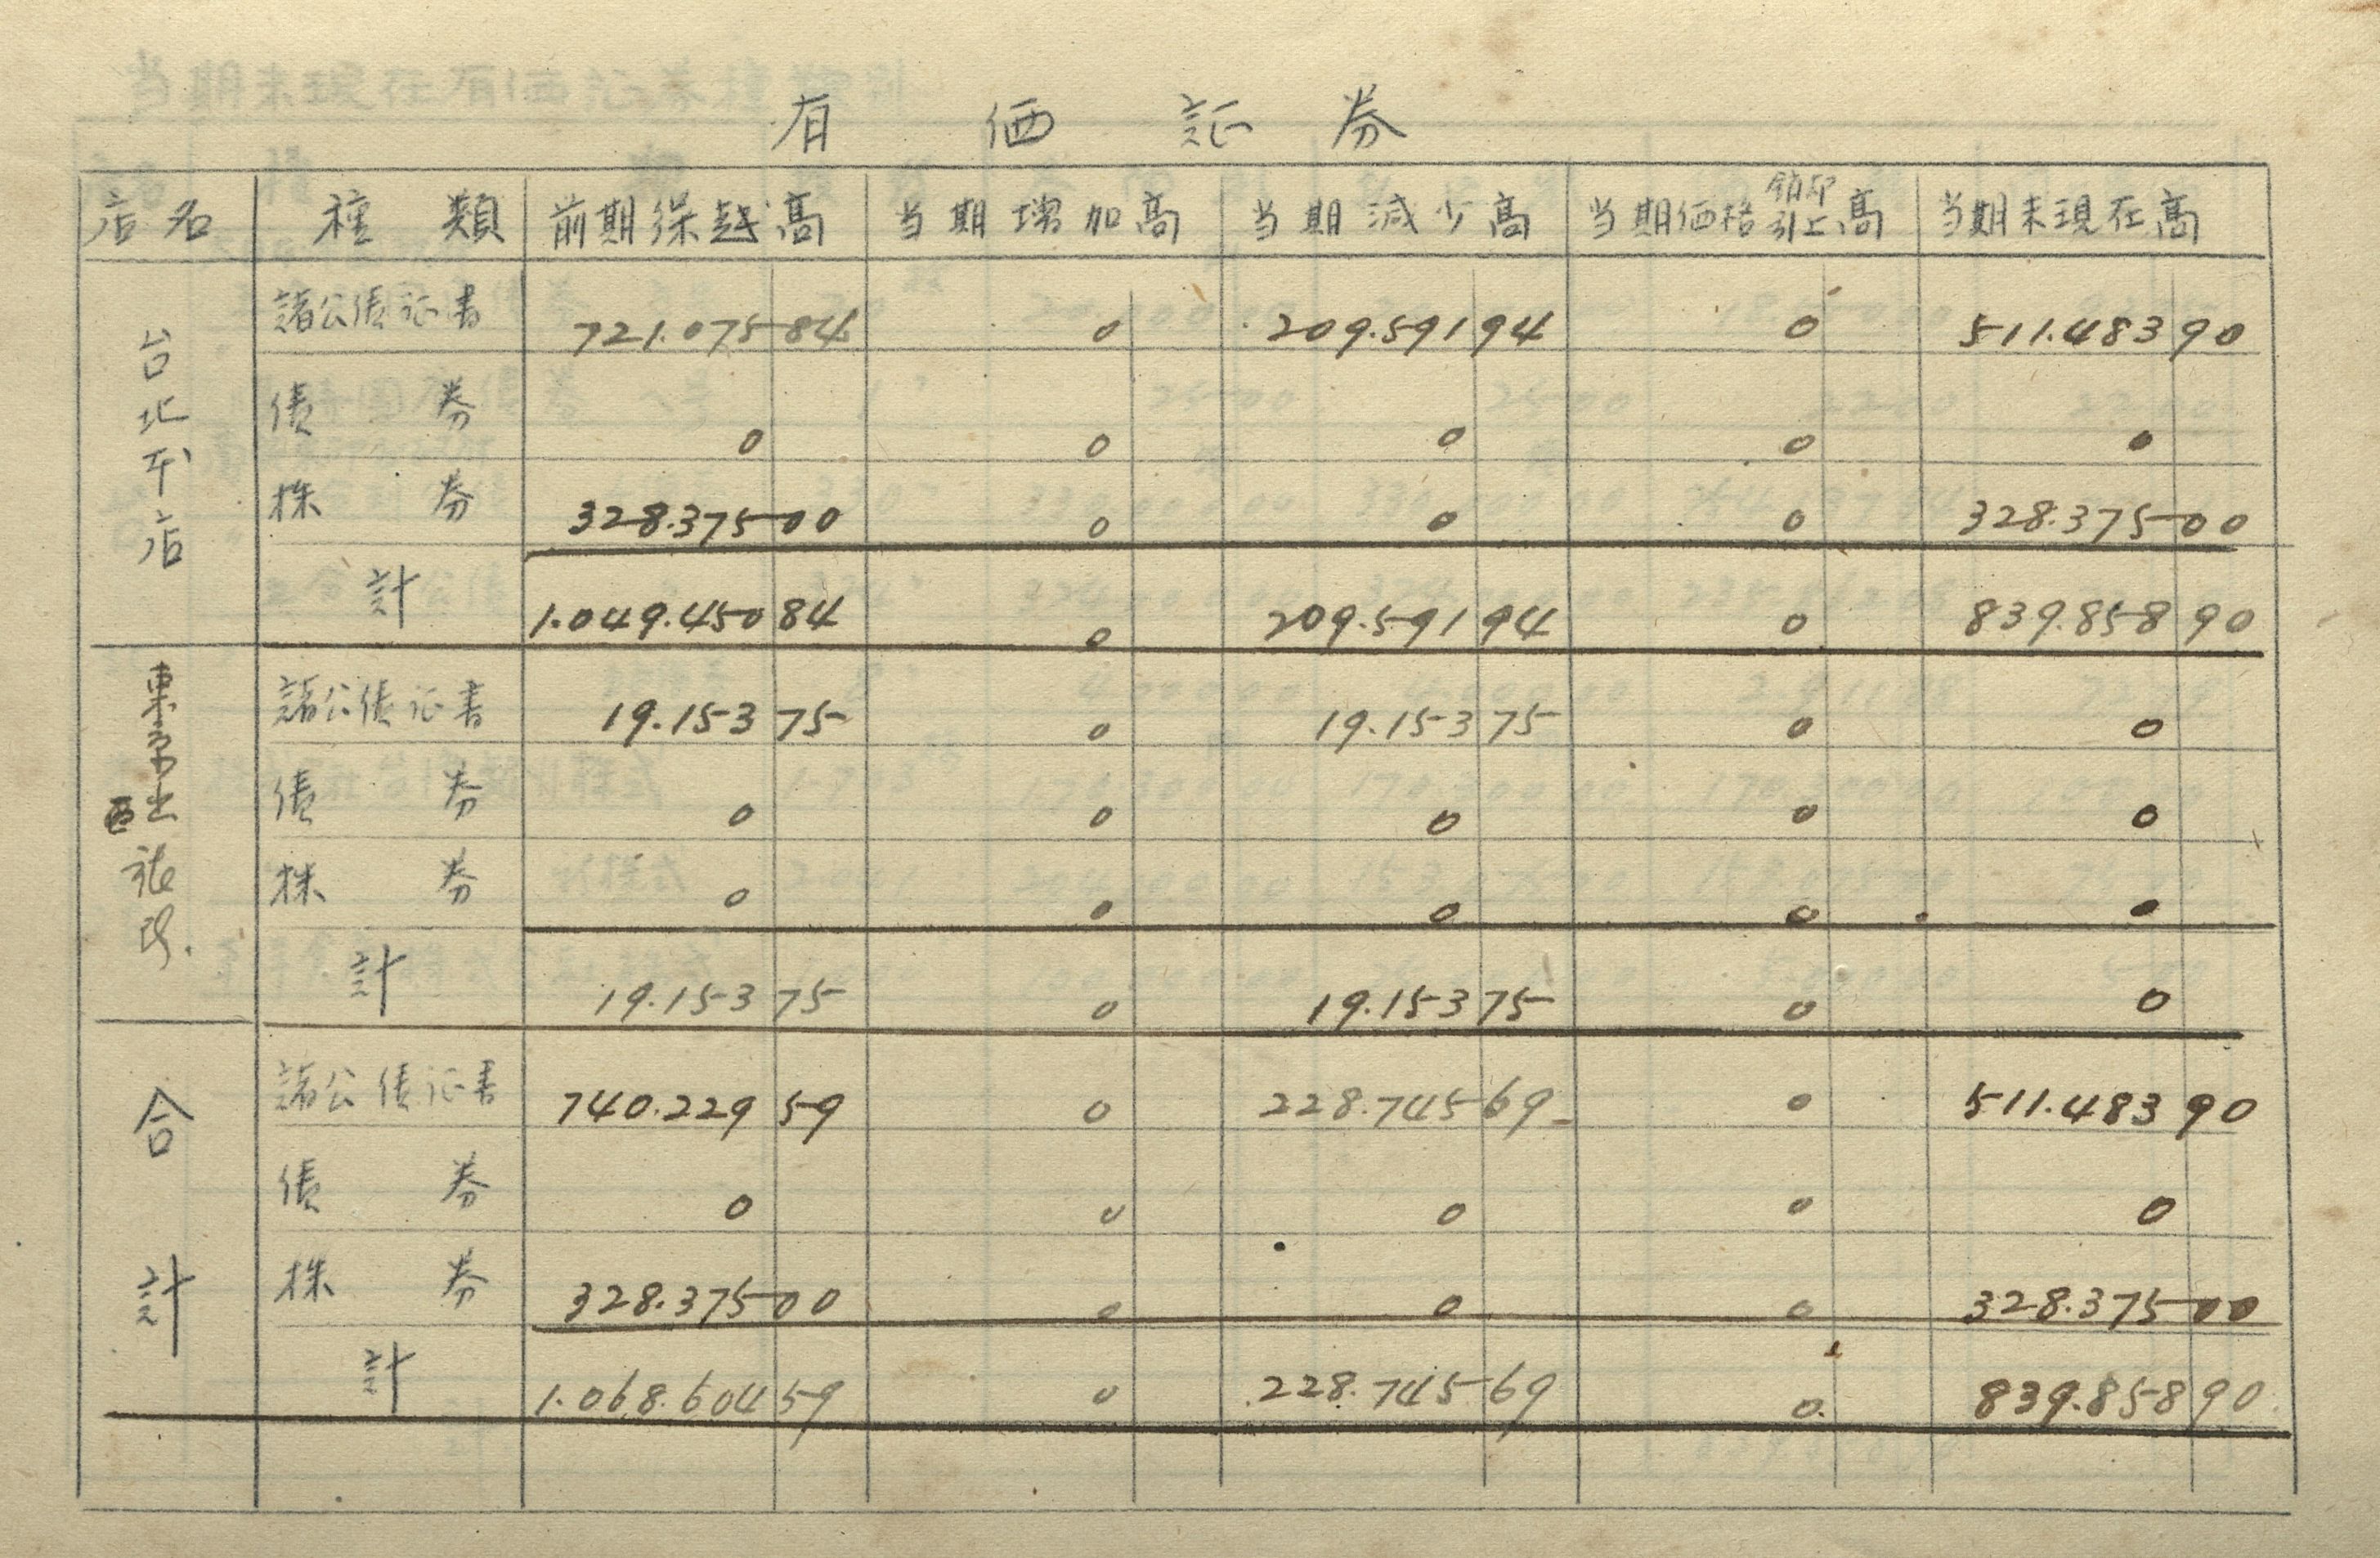 有価証券
店名 種類 前期繰越高 当期増加高 当期減少高 当期価格銷却引上高 当期末現在高
台北本店
諸公債証書 721.075 84 0 209.591 94 0 511.483 90
債券 0 0 0 0 0
株券 328.375 00 0 0 0 328.375 00
計 1.049.450 84 0 209.591 94 0 839.858 90
東京出張所
諸公債証書 19.153 75 0 19.153 75 0 0
債券 0 0 0 0 0
株券 0 0 0 0 0
計 19.153 75 0 19.153 75 0 0
合計
諸公債証書 740.229 59 0 228.745 69 0 511.483 90
債券 0 0 0 0 0
株券 328.375 00 0 0 0 328.375 00
計 1.068.604 59 0 228.745 69 0 839.858 90